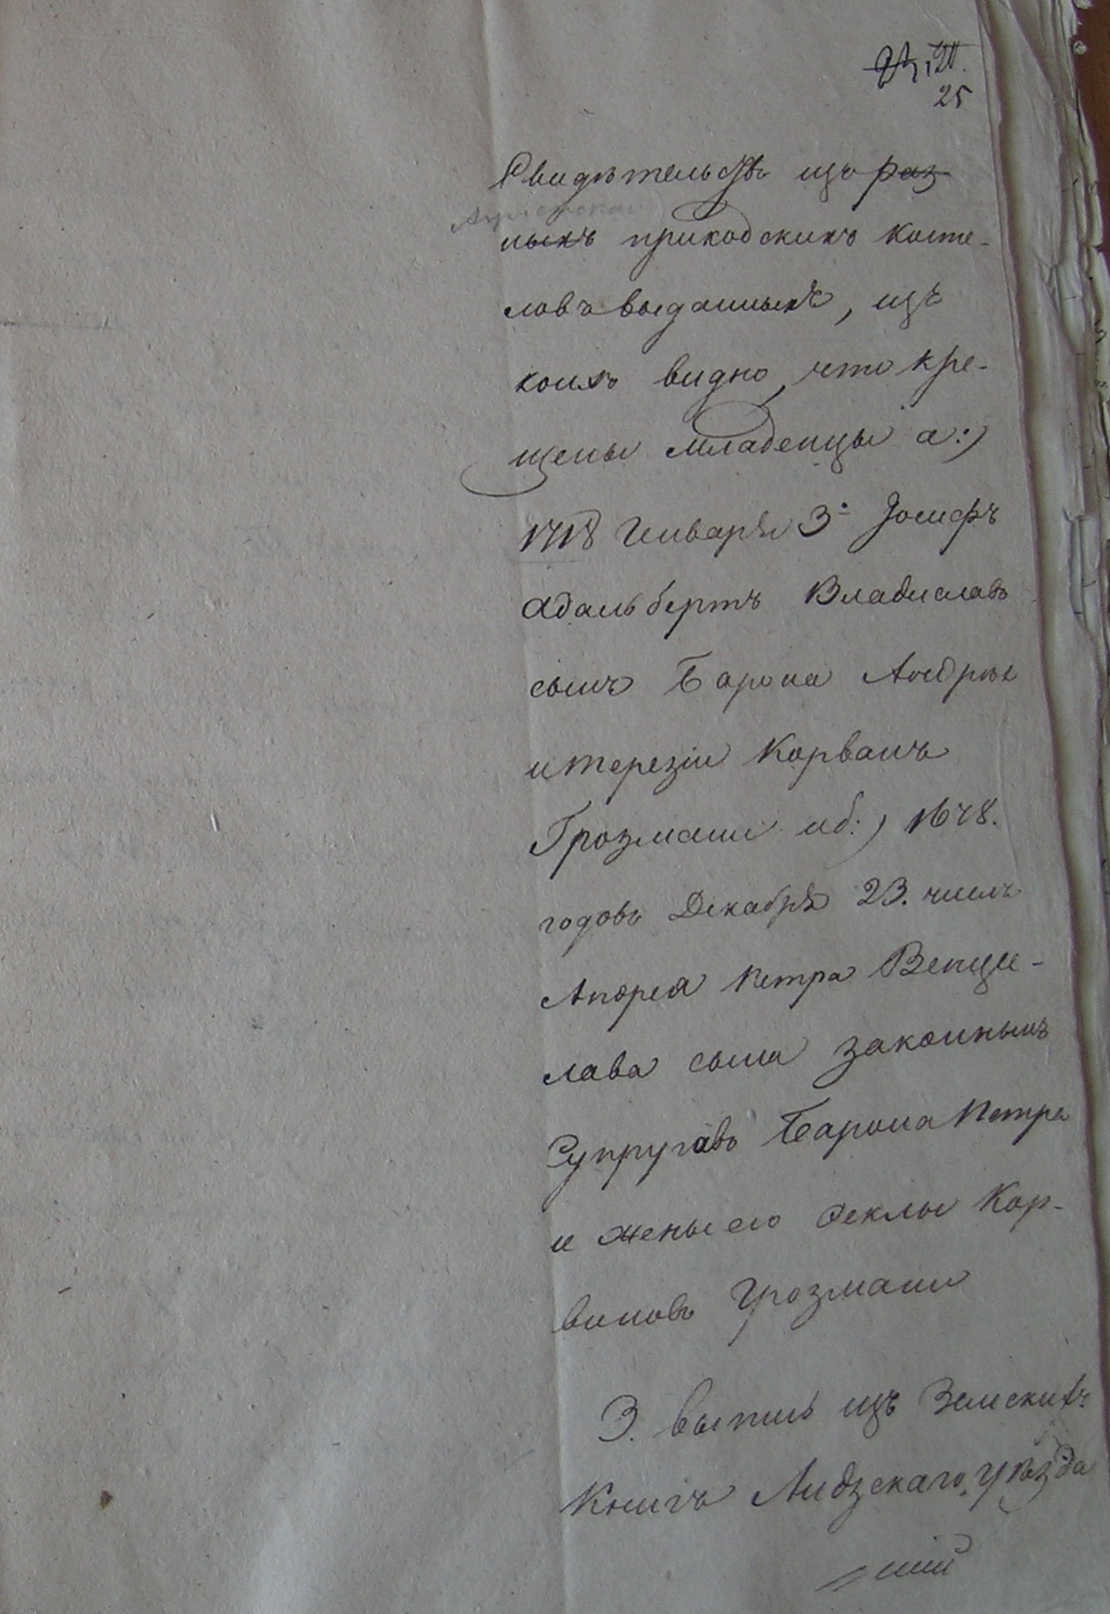 25
Свидѣтельствъ изъ раз-
ныхъ приходскихъ косте-
ловъ выданныхъ, изъ
коихъ видно, что кре-
щены младенцы а:)
1718 Генваря 3. Іосифъ
Адальбертъ Владиславъ
сынъ Барона Андрея
и Терезіи Корвинъ
Грозмани и б:) 1678.
годовъ Декабря 23. числъ
Андрея Петра Венце-
лава сына законныхъ
Супруговъ Барона Петра
и жены его Феклы Кор-
виновъ Грозмани
3. выпись изъ Земскихъ
Книгъ Лидзскаго уѣзда